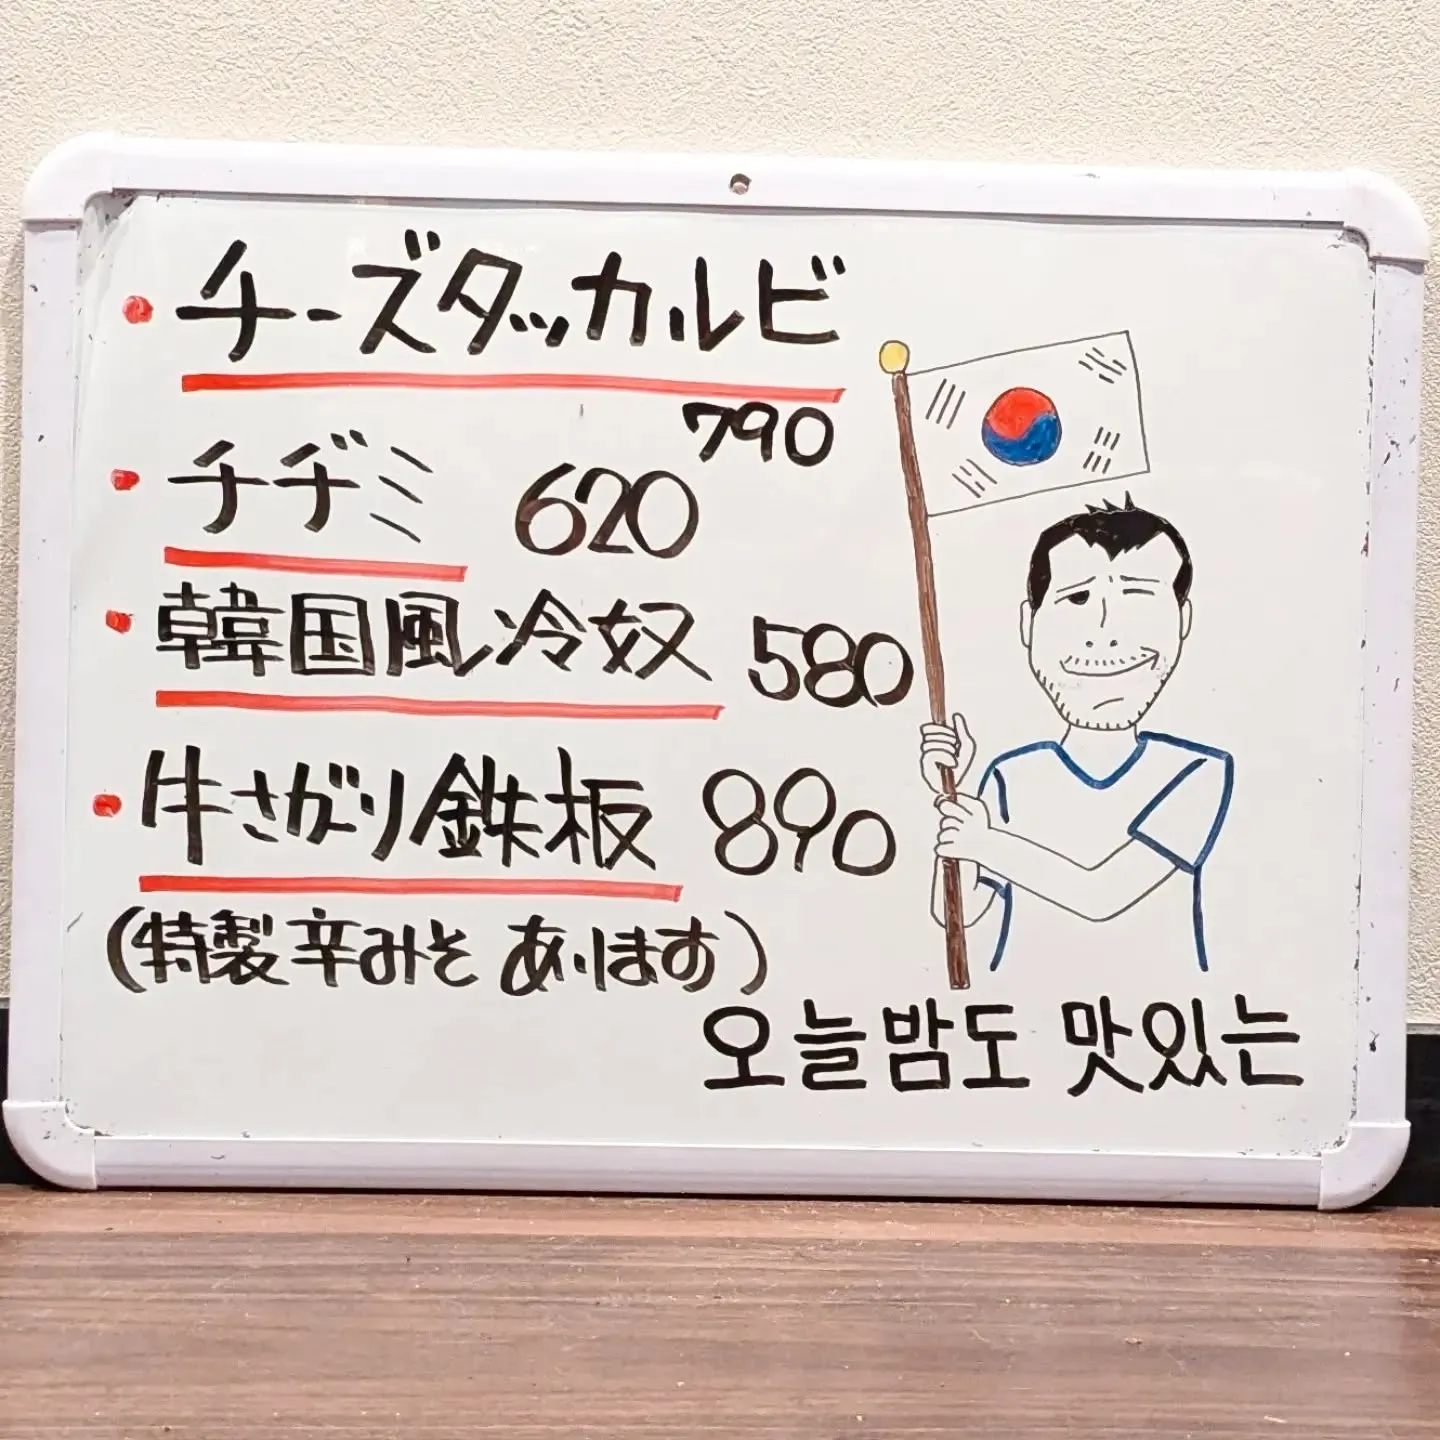 ・チーズタッカルビ
790
・チヂミ 620
・韓国風冷奴 580
・牛さがり鉄板 890
(特製辛みそ あります)
오늘밤도 맛있는